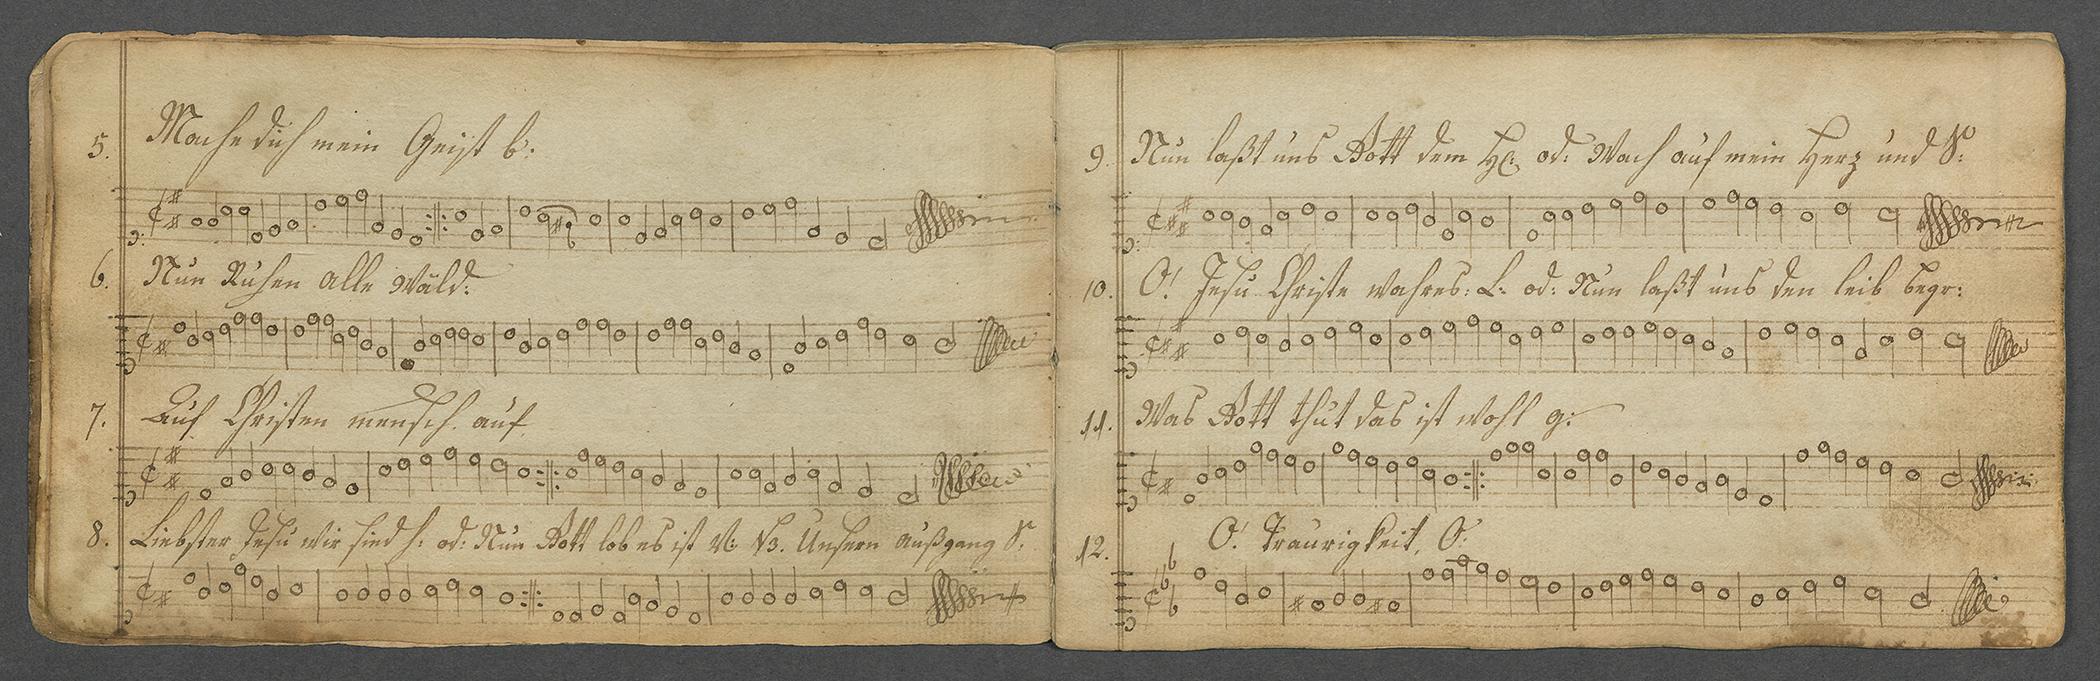 5. Mache dich mein Geist b:
6. Nun Ruhen alle Wäld:
7. Auf Christen mensch. auf
8. Liebster Jesu wir sind h: od: Nun Gott lob es ist V: V3. Unsern Außgang S:
9. Nun laßt uns Gott dem H: od: Wach auf mein Herz und S:
10. O! Jesu Christe wahres: L: od: Nun laßt uns den leib begr:
11. Was Gott thut das ist wohl g:
12. O! Traurigkeit, O!